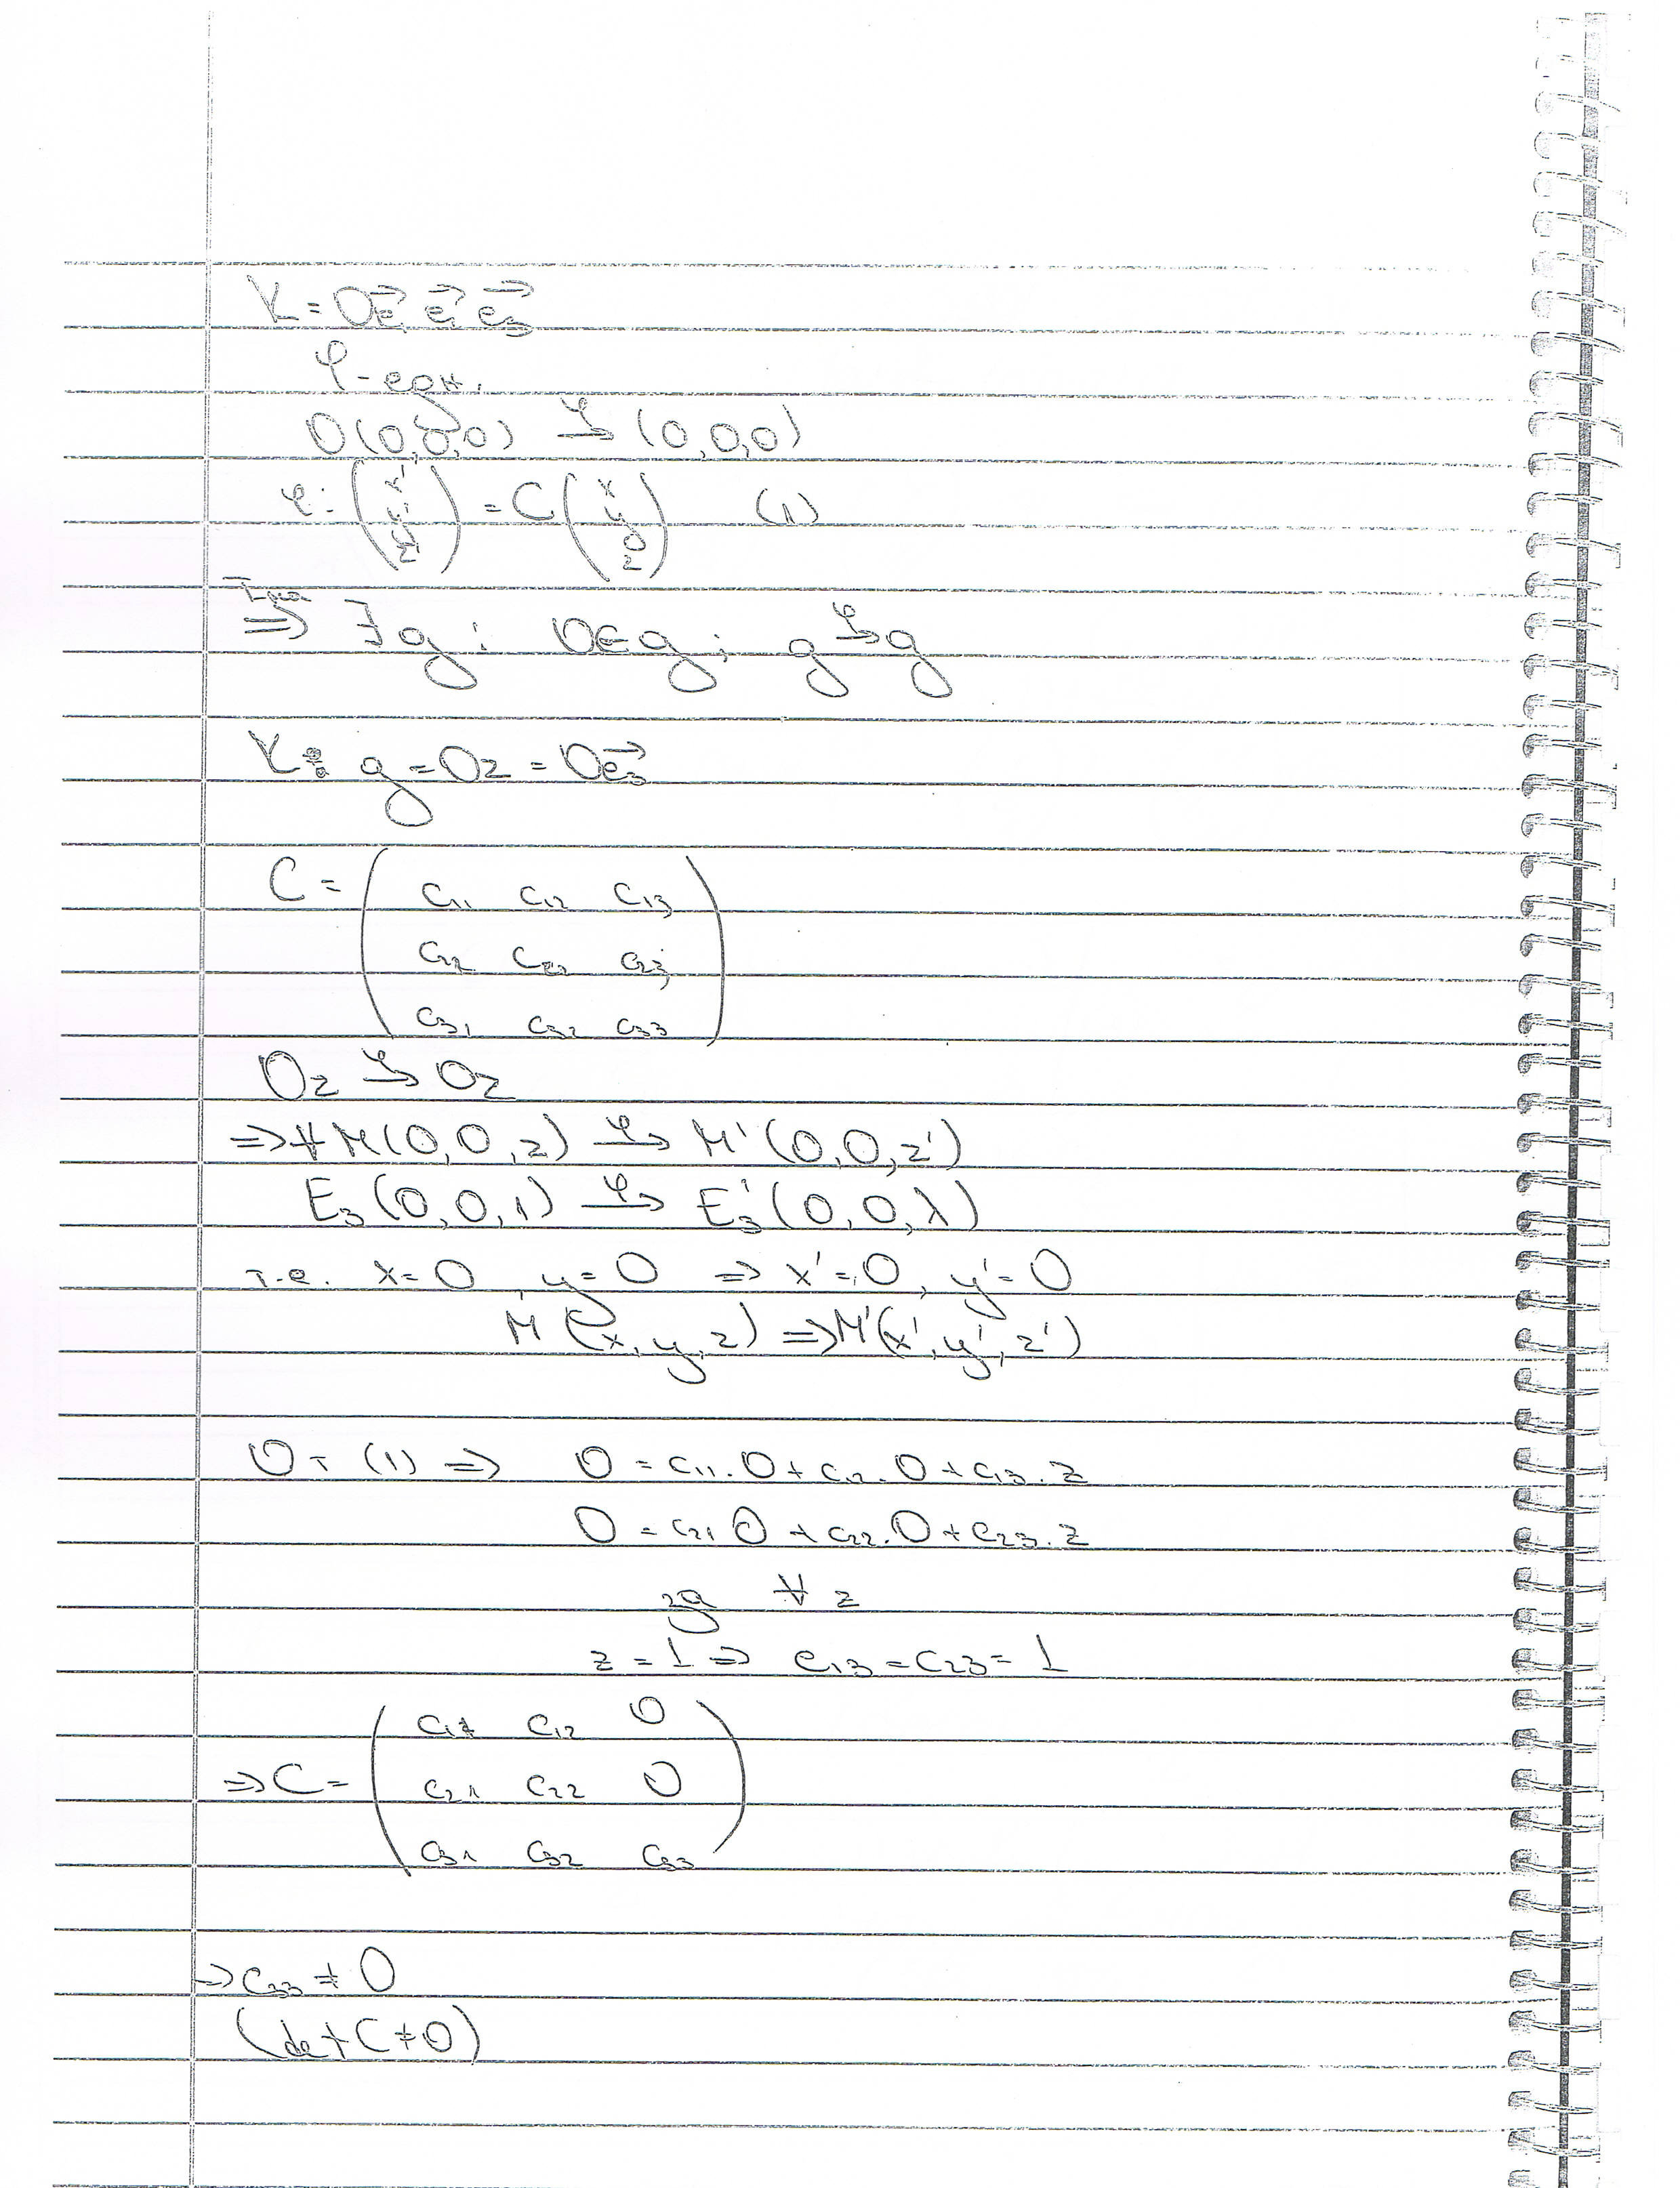 K = Oe⃗₁ e⃗₁ e⃗₃
φ - едн.
O(0,0,0) →^φ (0,0,0)
φ: (x' y' z') = C (x y z) (1)
⇒ ∃ g : O∈g ; g →^φ g
K: g = Oz = Oe⃗₃
C = ( c₁₁ c₁₂ c₁₃
c₂₂ c₂₂ c₂₃
c₃₁ c₃₂ c₃₃ )
Oz →^φ Oz
⇒ ∀ M(0,0,z) →^φ M'(0,0,z')
E₃(0,0,1) →^φ E₃'(0,0,λ)
т.е. x=0, y=0 ⇒ x'=0, y'=0
M(x,y,z) ⇒ M'(x',y',z')
От (1) ⇒ 0 = c₁₁.0 + c₁₂.0 + c₁₃.z
0 = c₂₁ 0 + c₂₂.0 + c₂₃.z
за ∀ z
z = 1 ⇒ c₁₃ = c₂₃ = 1
⇒ C = ( c₁₁ c₁₂ 0
c₂₁ c₂₂ 0
c₃₁ c₃₂ c₃₃ )
⇒ c₃₃ ≠ 0
(det C ≠ 0)